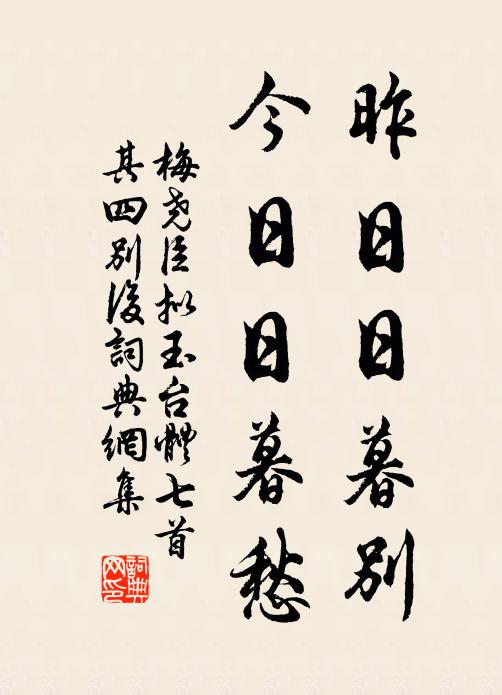 昨日日暮別
今日日暮愁
梅尧臣拟玉台體七首
其四别後詞典網集
詞典网印